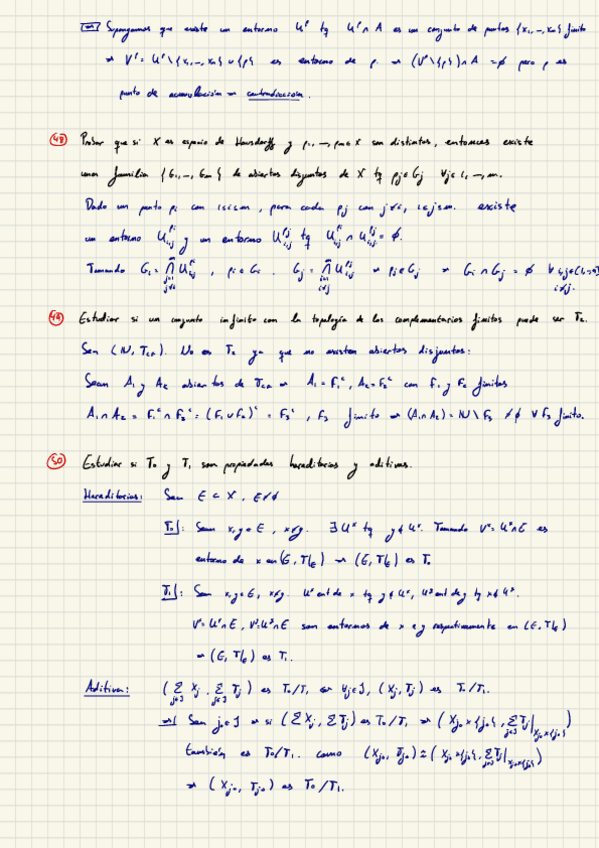 ⇒ Supongamos que existe un entorno Uᵖ tq Uᵖ∩A es un conjunto de puntos {x₁,…,xₙ} finito
⇒ Vᵖ = Uᵖ\{x₁,…,xₙ} ∪ {p} es entorno de p. ⇒ (Vᵖ\{p})∩A = ∅ pero p es
punto de acumulación ⇒ contradicción.
48 Probar que si X es espacio de Hausdorff y p₁,…,pₘ∈X son distintos, entonces existe
una familia {G₁,…,Gₘ} de abiertos disjuntos de X tq pj∈Gj ∀j=1,…,m.
Dado un punto pᵢ con 1≤i≤m, para cada pj con j≠i, 1≤j≤m. existe
un entorno Uᵢⱼᵖⁱ y un entorno Uᵢⱼᵖʲ tq Uᵢⱼᵖⁱ ∩ Uᵢⱼᵖʲ = ∅.
Tomando Gᵢ = ⋂ Uᵢⱼᵖⁱ, pᵢ∈Gᵢ. Gⱼ = ⋂ Uᵢⱼᵖʲ ⇒ pⱼ∈Gⱼ ⇒ Gᵢ∩Gⱼ = ∅ ∀i,j∈{1,…,m} i≠j.
49 Estudiar si un conjunto infinito con la topología de los complementarios finitos puede ser T₂.
Sea (ℕ, T_CF). No es T₂ ya que no existen abiertos disjuntos:
Sean A₁ y A₂ abiertos de T_CF ⇒ A₁=F₁ᶜ, A₂=F₂ᶜ con F₁ y F₂ finitos
A₁∩A₂ = F₁ᶜ∩F₂ᶜ = (F₁∪F₂)ᶜ = F₃ᶜ, F₃ finito ⇒ (A₁∩A₂) = ℕ\F₃ ≠∅ ∀F₃ finito.
50 Estudiar si T₀ y T₁ son propiedades hereditarias y aditivas.
Hereditarias: Sea E⊂X, E≠∅
T₀: Sean x,y∈E, x≠y. ∃Uˣ tq y∉Uˣ. Tomando Vˣ=Uˣ∩E es
entorno de x en (E, T|_E) ⇒ (E, T|_E) es T₀
T₁: Sean x,y∈E, x≠y. Uˣ ent de x tq y∉Uˣ, Uʸ ent de y tq x∉Uʸ.
Vˣ=Uˣ∩E, Vʸ=Uʸ∩E son entornos de x e y respectivamente en (E, T|_E)
⇒ (E, T|_E) es T₁.
Aditiva: (∑ Xj, ∑ Tj) es T₀/T₁ ⇔ ∀j∈J, (Xj, Tj) es T₀/T₁.
⇒ Sea j₀∈J ⇒ si (∑Xj, ∑Tj) es T₀/T₁ ⇒ (Xj₀×{j₀}, ∑Tj|Xj₀×{j₀})
también es T₀/T₁. como (Xj₀, Tj₀) ≅ (Xj₀×{j₀}, ∑Tj|Xj₀×{j₀})
⇒ (Xj₀, Tj₀) es T₀/T₁.